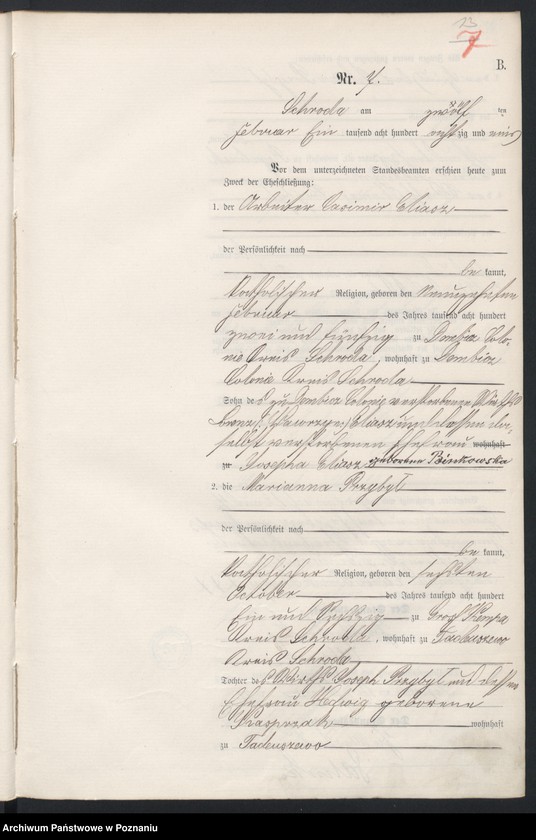 13
7
B.
Nr. 7.
Schroda am zwölf ten
Februar Ein tausend acht hundert achtzig und
Vor dem unterzeichneten Standesbeamten erschien heute zum
Zweck der Eheschließung:
1. der Arbeiter Casimir Eliasz
der Persönlichkeit nach
be kannt,
katholischer Religion, geboren den neunzehnten
Februar des Jahres tausend acht hundert
zwei und fünfzig zu Dembicz Colo-
nie Kreis Schroda, wohnhaft zu Dembicz
Colonie Kreis Schroda
Sohn des zu Dembicz Colonie verstorbenen
Lorenz (Wawrzyn) Eliasz und dessen da-
selbst verstorbenen Ehefrau wohnhaft
zu Josepha Eliasz geborene Binkowska
2. die Marianna Przybył
der Persönlichkeit nach
be kannt,
katholischer Religion, geboren den sechsten
October des Jahres tausend acht hundert
Ein und sechszig zu Groß Kempa
Kreis Schroda, wohnhaft zu Tadeuszewo
Kreis Schroda
Tochter des Wirths Joseph Przybył und dessen
Ehefrau Hedwig geborene
Kasprzak wohnhaft
zu Tadeuszewo
Archiwum Państwowe w Poznaniu